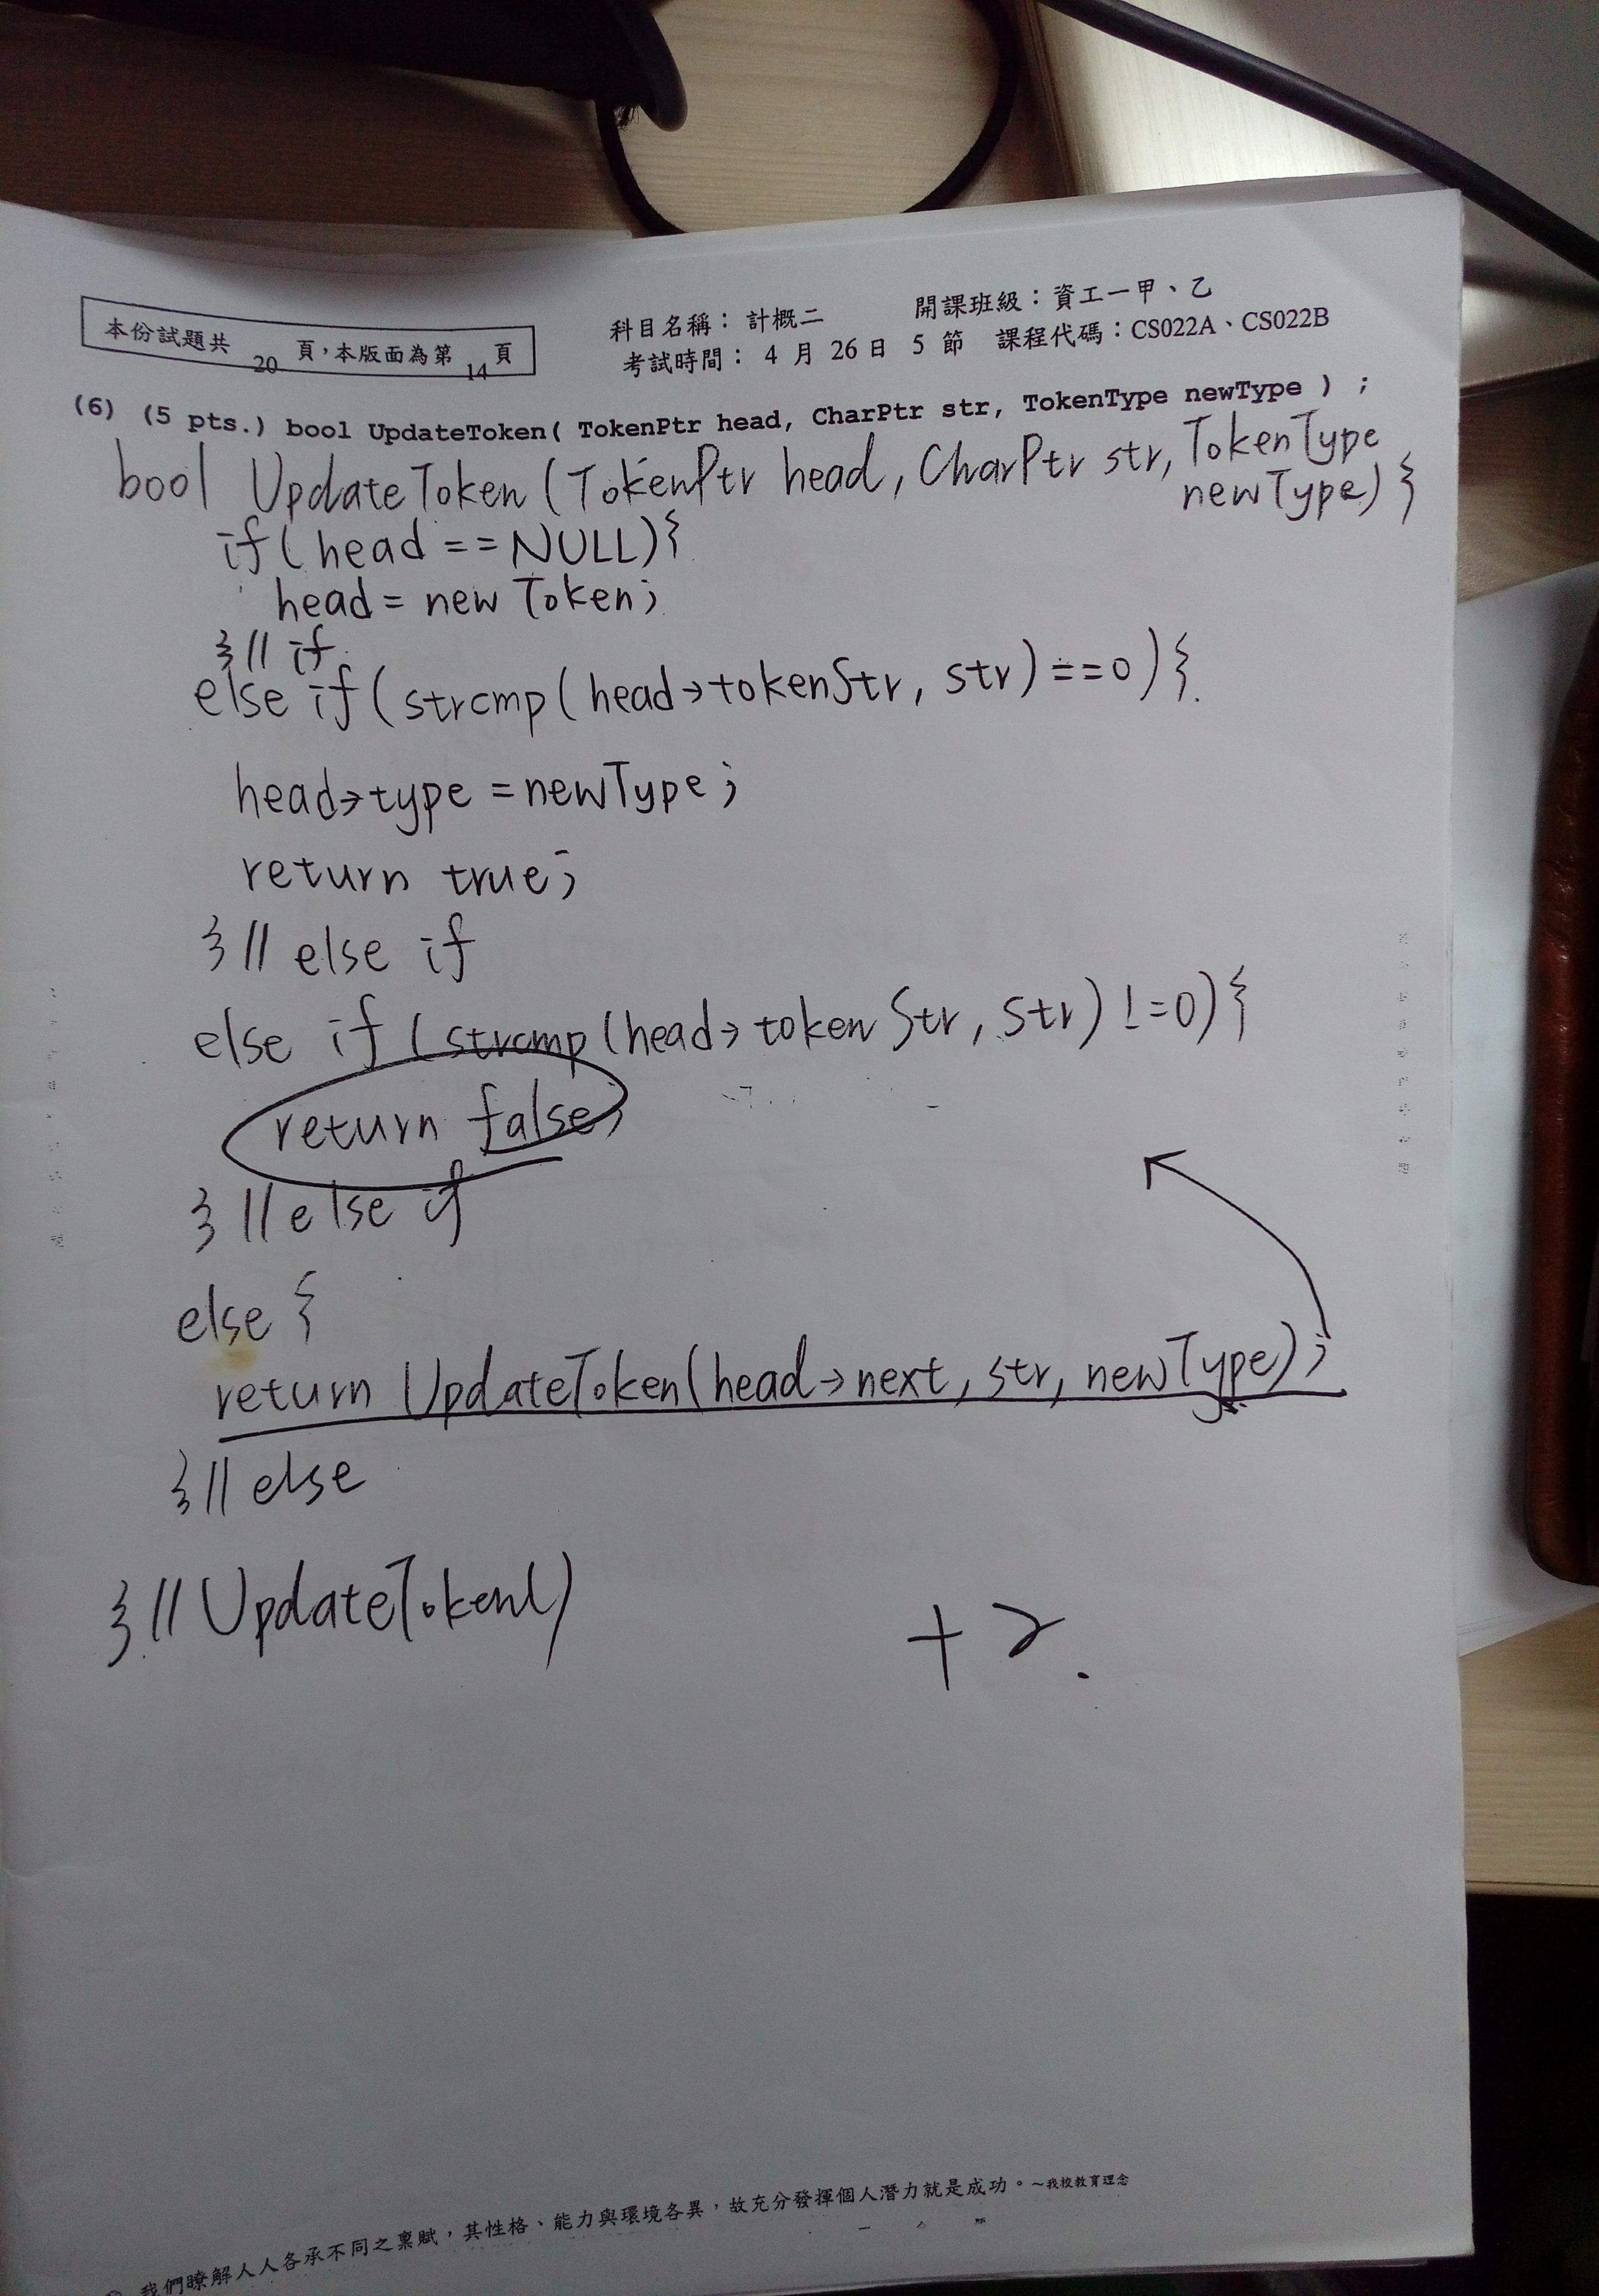 本份試題共 20 頁，本版面為第 14 頁
科目名稱： 計概二 開課班級：資工一甲、乙
考試時間： 4 月 26 日 5 節 課程代碼：CS022A、CS022B
(6) (5 pts.) bool UpdateToken( TokenPtr head, CharPtr str, TokenType newType ) ;
bool UpdateToken (TokenPtr head, CharPtr str, TokenType
newType) {
if (head == NULL) {
head = new Token;
} // if
else if (strcmp (head->tokenStr, str) == 0) {
head->type = newType;
return true;
} // else if
else if (strcmp (head->tokenStr, str) != 0) {
return false;
} // else if
else {
return UpdateToken(head->next, str, newType);
} // else
} // UpdateToken()
+2.
我們瞭解人人各承不同之稟賦，其性格、能力與環境各異，故充分發揮個人潛力就是成功。～我校教育理念